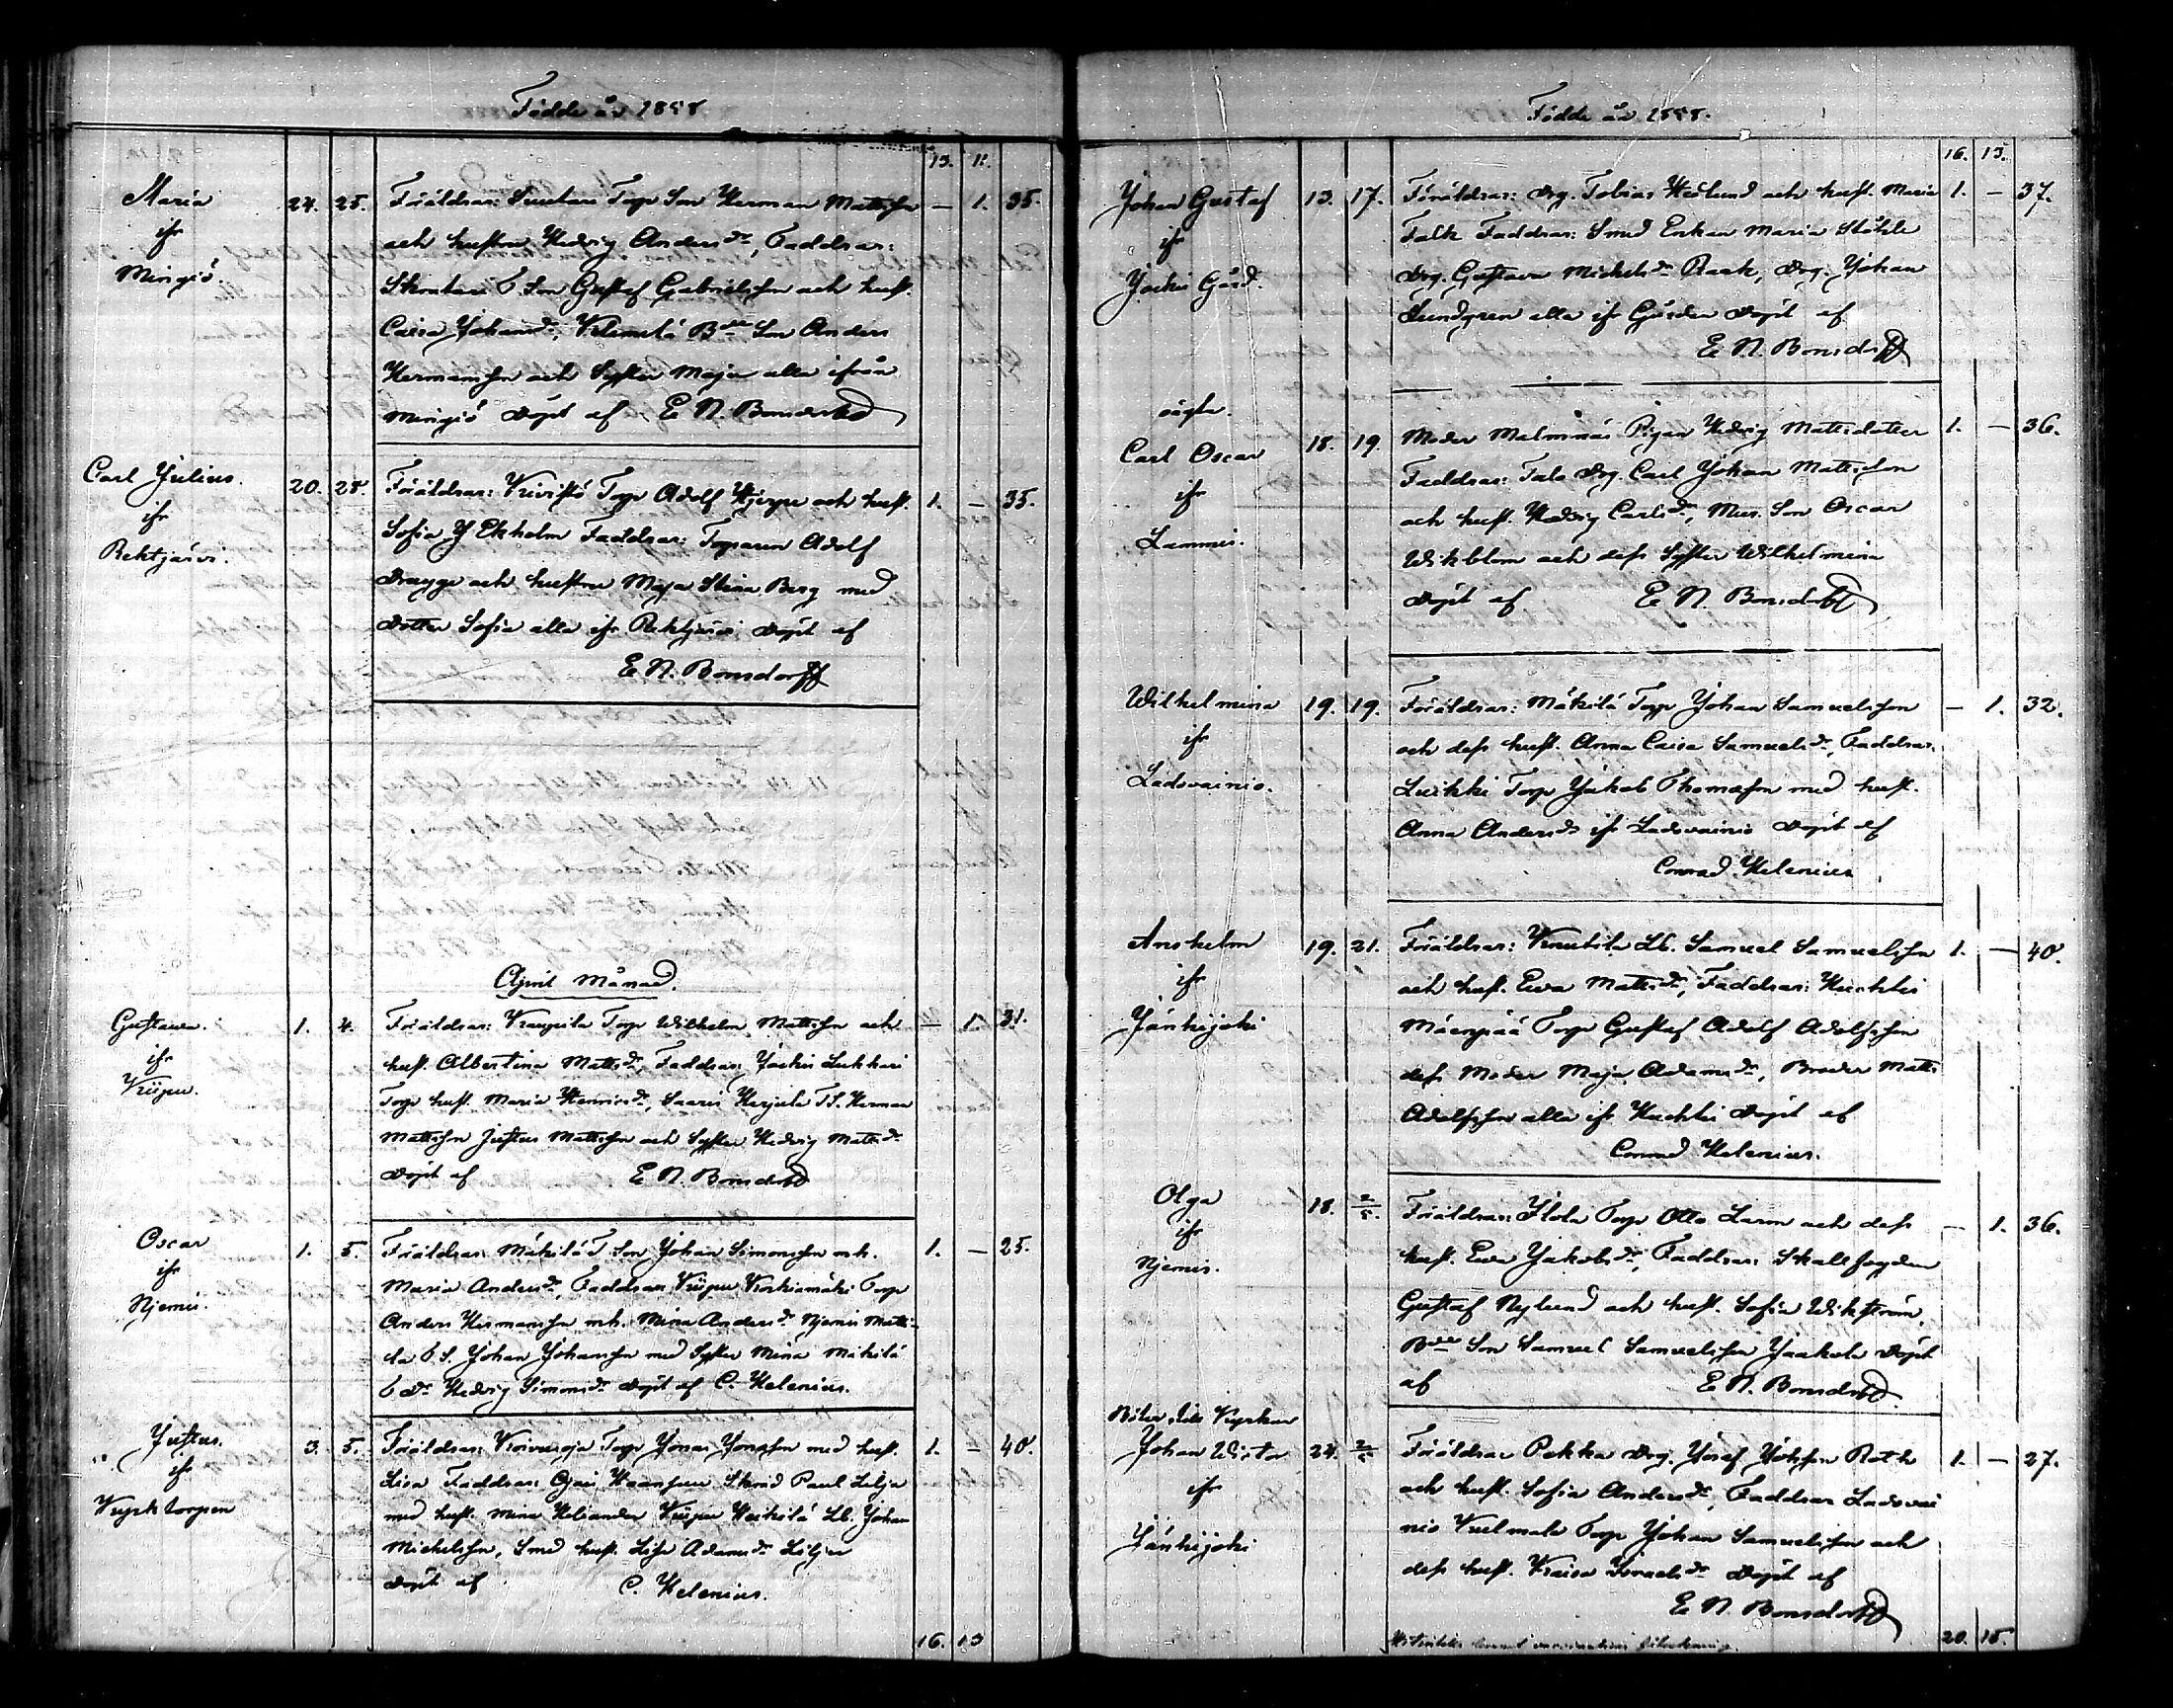 Födde år 1858
13. 11.
Maria
ifr
Mingiö.
24. 25. Föräldrar: Torp Son Herman Mattsson — 1. 35.
och hustru Hedvig Andersdr, Faddrar:
T Son Gustaf Gabrielsson och hust.
Caisa Johansdr, Son Anders
Hermansson och Syster Maja alla ifrån
Mingiö Döpt af E N. Bonsdorff
Carl Julius.
ifr
Rektjärvi.
20. 28. Föräldrar: Kivistö Torp Adolf och hust. 1. — 35.
Sofia Ekholm Faddrar: Torparen Adolf
och hustru Maja Stina Berg med
Dotter Sofia alla ifr. Rektjärvi Döpt af
E N. Bonsdorff
April Månad.
Gustava.
ifr
Viipu.
1. 4. Föräldrar: Torp Wilhelm Mattsson och — 1. 31.
hust. Albertina Mattsdr, Faddrar: Jockis Lukkari
Torp hust. Maria Henricsdr, Saaris TS. Herman
Mattsson Justus Mattsson och Syster Hedvig Mattsdr
Döpt af E N. Bonsdorff
Oscar
ifr
Njemis.
1. 5. Föräldrar: Mäkilä T. Son Johan Simonsson mh. 1. — 25.
Maria Andersdr, Faddrar: Torp
Anders Hermansson mh. Mina Andersdr Njemis
T.S. Johan Johansson med Syster Mina Mäkilä
Hedvig Simonsdr Döpt af C. Helenius.
Justus.
ifr
Kyrktorpen
3. 5. Föräldrar: Torp Jonas Jonasson med hust. 1. — 40.
Lisa Faddrar: Paul Lilja
med hust. Mina Heliander Heikilä Lb. Johan
Michelsson, Smed hust. Lisa Adamsdr Lilja
Döpt af C. Helenius.
16. 13
Födde år 1858.
16. 13.
Johan Gustaf
ifr
Jockis Gård.
13. 17. Föräldrar: Drg. Tobias Hedlund och hust. Maria 1. — 37.
Falk Faddrar: Smed Enkan Maria Ståhle
Drg. Gustava Michelsdr Raak, Drg. Johan
Lundgren alla ifr Gården Döpt af
E N. Bonsdorff
oägta.
Carl Oscar
ifr
Lammis.
18. 19. Moder Malmnäs Pigan Hedvig Mattsdotter 1. — 36.
Faddrar: Drg. Carl Johan Mattsson
och hust. Hedvig Carlsdr, Son Oscar
Wikblom och dess Syster Wilhelmina
Döpt af E N. Bonsdorff
Wilhelmina
ifr
Ladovainio.
19. 19. Föräldrar: Mäkilä Torp Johan Samuelsson — 1. 32.
och dess hust. Anna Caisa Samuelsdr, Faddrar.
Luikki Torp Jakob Thomasson med hust.
Anna Andersdr ifr Ladovainio Döpt af
Conrad Helenius
Anshelm
ifr
Jänhijoki
19. 21. Föräldrar: Knuutila Lb. Samuel Samuelsson 1. — 40.
och hust. Eva Mattsdr, Faddrar: Huhtis
Mäenpää Torp Gustaf Adolf Adolfsson
dess Moder Maja Adamsdr, Broder Matts
Adolfsson alla ifr Huhtis Döpt af
Conrad Helenius.
Olga
ifr
Njemis.
18. 2/5. Föräldrar: Torp Otto Larson och dess — 1. 36.
hust. Eva Jakobsdr, Faddrar: Skallfogden
Gustaf Nylund och hust. Sofia Wikström,
Son Samuel Samuelsson Jaakola Döpt
af E N. Bonsdorff.
Johan Wictor
ifr
Jänhijoki
24. 2/5 Föräldrar Pekka Drg. Josef Roth 1. — 27.
och hust. Sofia Andersdr, Faddrar Ladovai
nio Torp Johan Samuelsson och
dess hust. Kaisa Israelsdr Döpt af
E N. Bonsdorff
20. 15.